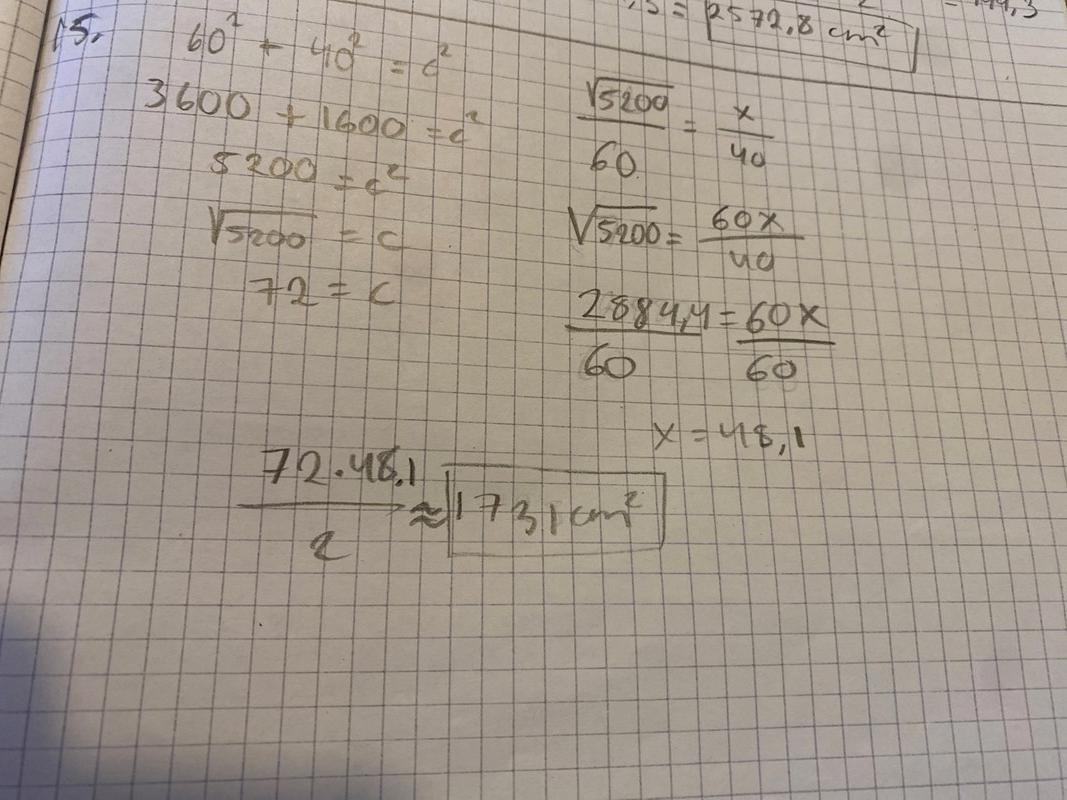 = 2572,8 cm²
15.
60² + 40² = c²
3600 + 1600 = c²
5200 = c²
√5200 = c
72 = c
√5200/60 = x/40
√5200 = 60x/40
2884,4/60 = 60x/60
x = 48,1
72·48,1/2 ≈ 1731 cm²